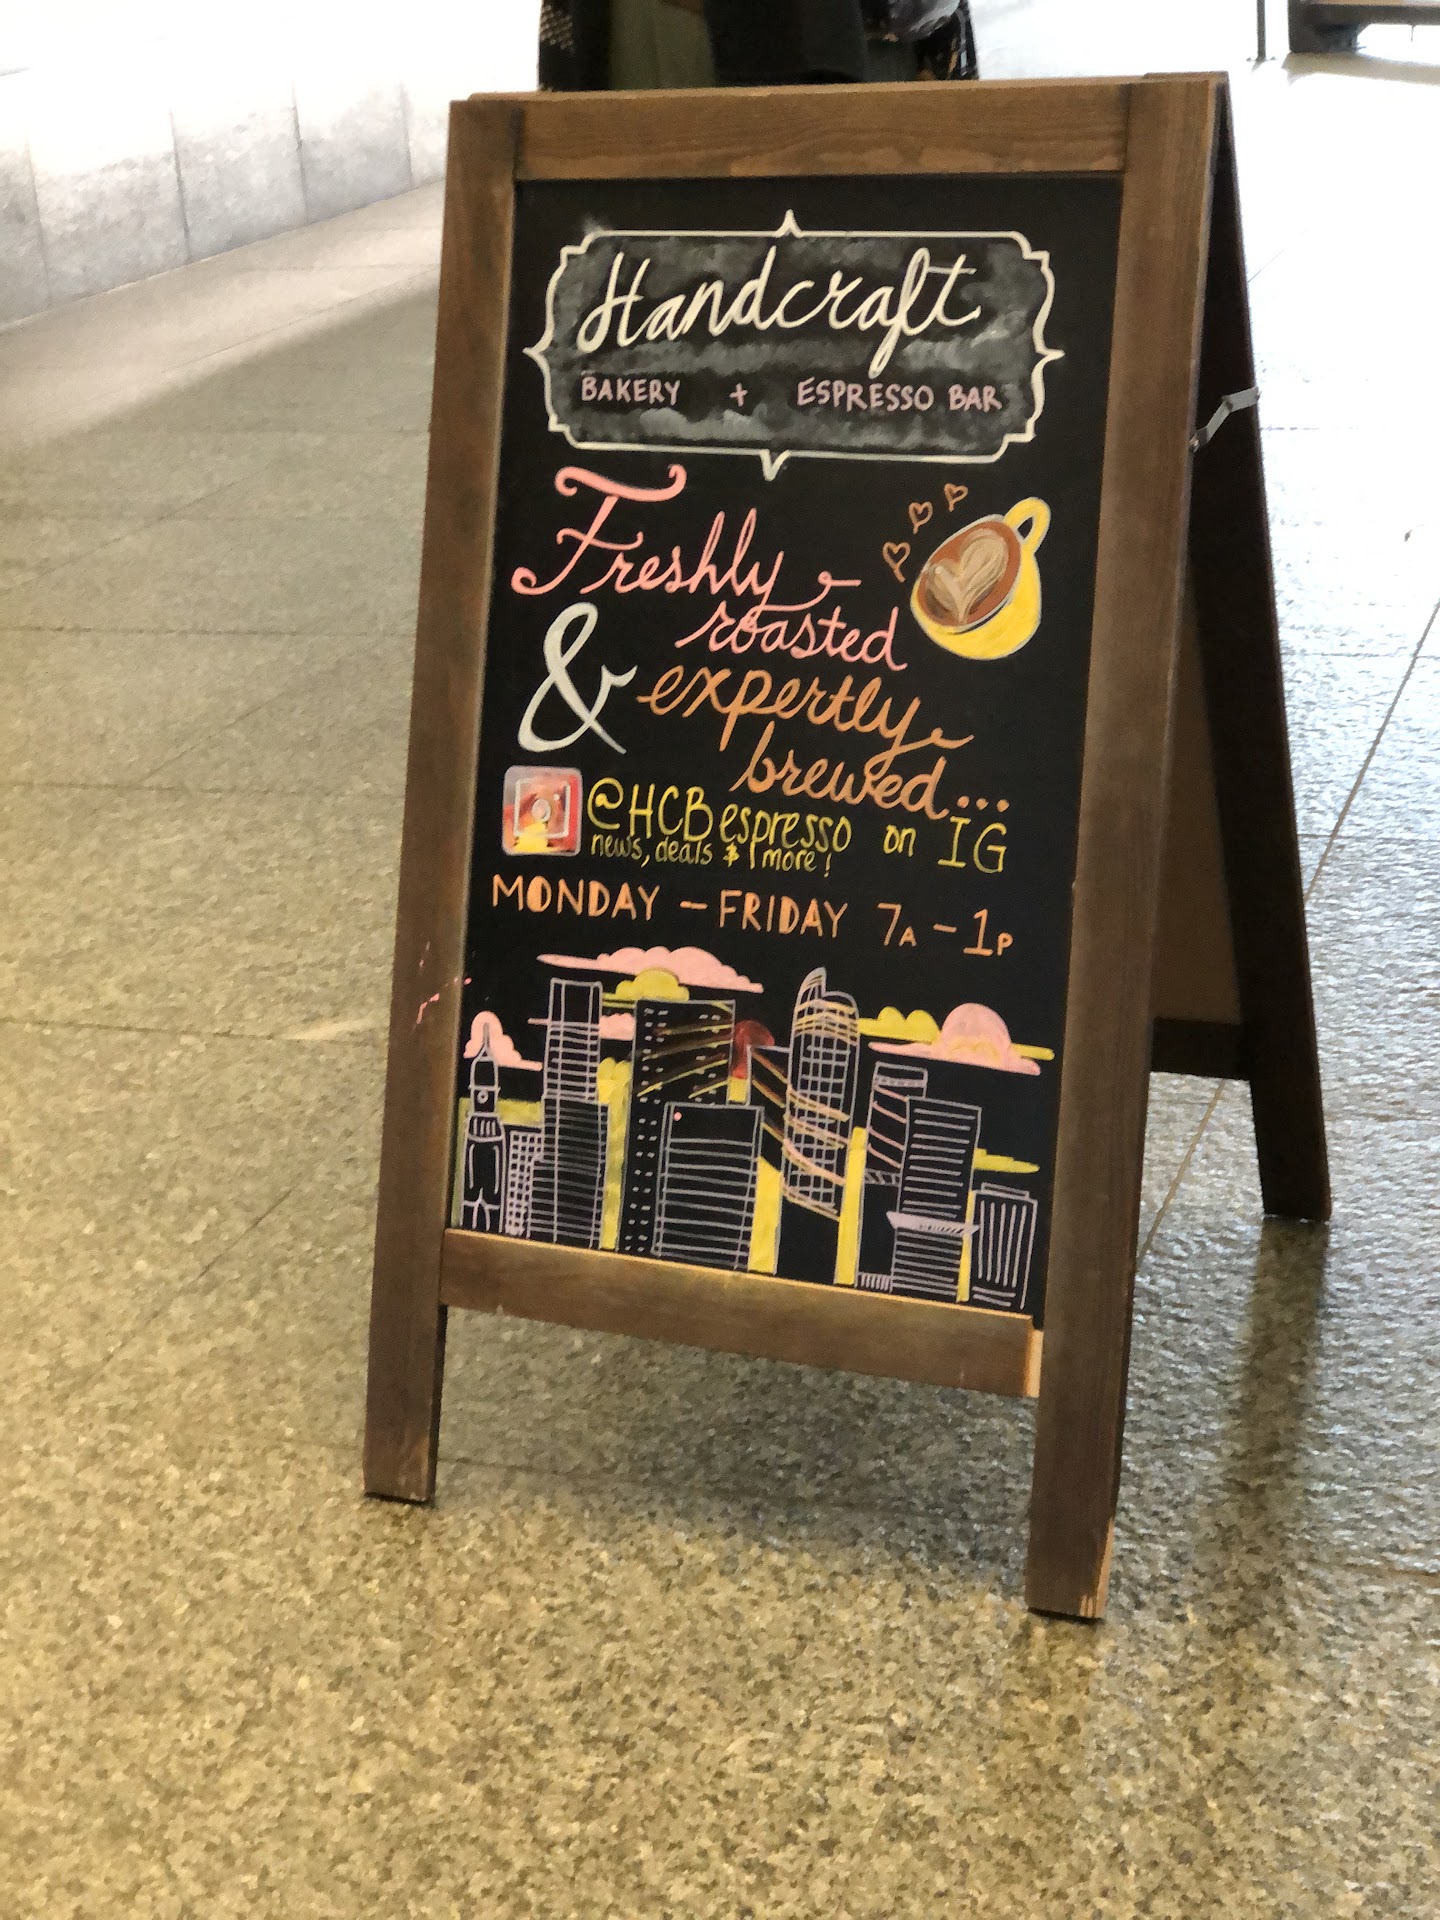 Handcraft
BAKERY + ESPRESSO BAR
Freshly
roasted
& expertly
brewed...
@HCBespresso on IG
news, deals & more!
MONDAY - FRIDAY 7A - 1P